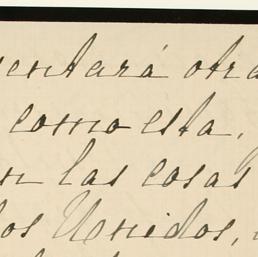 entará otra
como esta,
n las cosas
los Unidos,